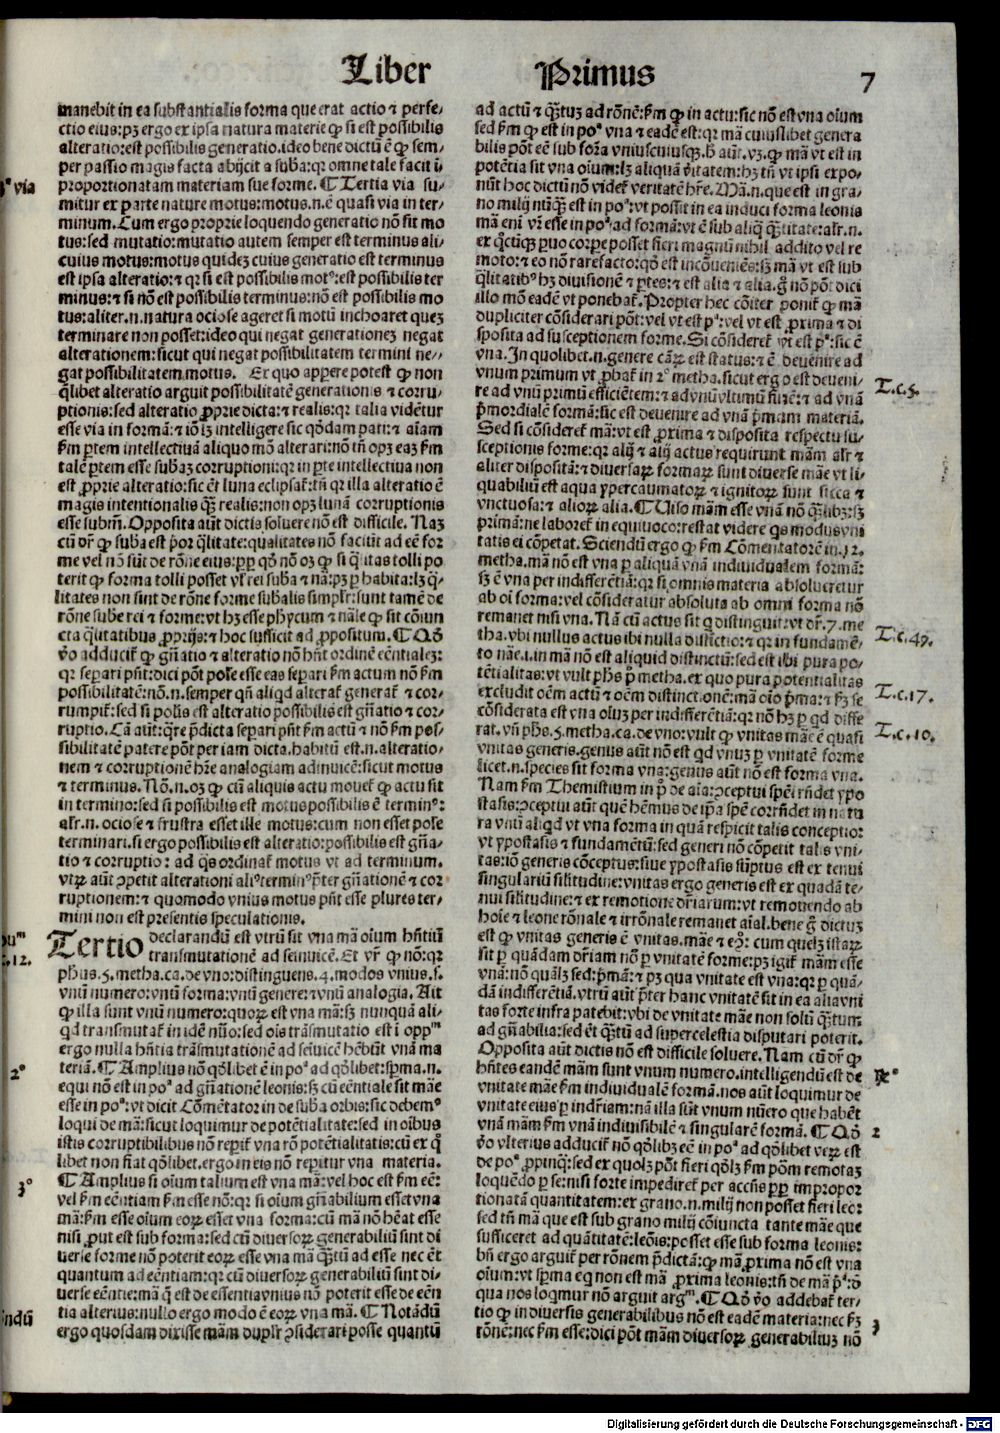 Liber Primus 7
manebit in ea substantialis forma que erat actio ⁊ perfe-
ctio eius: pꝫ ergo ex ipsa natura materie ꝙ si est possibilis
alteratio: est possibilis generatio. ideo bene dictū ē ꝙ sem-
per passio magis facta abijcit a suba: qr omne tale facit ī
proportionatam materiam sue forme. ¶ Tertia via su-
mitur ex parte nature motus: motus .n. ē quasi via in ter-
minum. Cum ergo proprie loquendo generatio nō sit mo
tus: sed mutatio: mutatio autem semper est terminus ali-
cuius motus: motus quidez cuius generatio est terminus
est ipsa alteratio: ⁊ qr si est possibilis motꝰ: est possibilis ter
minus: ⁊ si nō est possibilis terminus: nō est possibilis mo
tus: aliter .n. natura ociose ageret si motū inchoaret quez
terminare non posset: ideo qui negat generationez negat
alterationem: sicut qui negat possibilitatem termini ne-
gat possibilitatem motus. Ex quo appere potest ꝙ non
qlibet alteratio arguit possibilitatē generationis ⁊ corru-
ptionis: sed alteratio proprie dicta: ⁊ realis: qr talia vidētur
esse via in formā: ⁊ iō lꝫ intelligere sic qōdam pati: ⁊ aīam
fm ptem intellectiuā aliquo mō alterari: nō tn̄ opꝫ eaꝫ fm
talē ptem esse subaꝫ corruptioni: qr in pte intellectiua non
est proprie alteratio: sic ēt luna eclipsat̄: tn̄ qr illa alteratio ē
magis intentionalis qꝫ realis: non opꝫ lunā corruptionis
esse subm̄. Opposita aūt dictis soluere nō est difficile. Naꝫ
cū dr̄ ꝙ suba est por qlitate: qualitates nō faciūt ad eē for
me vel nō sūt de rōne eius: pp qō nō oꝫ ꝙ si qlitas tolli po
terit ꝙ forma tolli posset vl̄ rei suba ⁊ nā: pꝫ p habita: lꝫ q-
litates non sint de rōne forme subalis simplr: sunt tamē de
rōne sube rei ⁊ forme: vt hꝫ esse phycum ⁊ nāle ꝙ sit cōiun
cta qlitatibus proprijs: ⁊ hoc sufficit ad propositum. ¶ Qō
v̊o adducit̄ ꝙ gn̄atio ⁊ alteratio nō hn̄t ordinē eēntialeꝫ:
qr separi pn̄t: dici pōt posse esse eas separi fm actum nō fm
possibilitatē: nō .n. semper qn̄ aliqd alterat̄ generat̄ ⁊ cor-
rumpit̄: sed si poīs est alteratio possibilis est gn̄atio ⁊ cor-
ruptio. Cā aūt: qre pdicta separi pn̄t fm actū ⁊ nō fm pos-
sibilitatē patere pōt per iam dicta. habitū est .n. alteratio-
nem ⁊ corruptionē hr̄e analogiam adinuicē: sicut motus
⁊ terminus. Nō .n. oꝫ ꝙ cū aliquis actu mouet̄ ꝙ actu sit
in termino: sed si possibilis est motus possibilis ē terminꝰ:
alr̄ .n. ociose ⁊ frustra esset ille motus: cum non esset posse
terminari. si ergo possibilis est alteratio: possibilis est gn̄a-
tio ⁊ corruptio: ad qs ordinat̄ motus vt ad terminum.
vtꝝ aūt ꝯpetit alterationi aliꝰ terminꝰ pter gn̄ationē ⁊ cor
ruptionem: ⁊ quomodo vnius motus pn̄t esse plures ter-
mini non est presentis speculationis.
Tertio declarandū est vtrū sit vna mā oīum hn̄tiū
transmutationē ad seinuicē. Et vr̄ ꝙ nō: qr
phūs .5. metha. ca. de vno: distinguens .4. modos vnius .s.
vnū numero: vnū forma: vnū genere: ⁊ vnū analogia. Ait
ꝙ illa sunt vnū numero: quoꝝ est vna mā: sꝫ nunquā ali-
qd transmutat̄ in idē nūo: sed ois trāsmutatio est ī oppᵐ
ergo nulla hn̄tia trāsmutationē ad seiuicē hēbūt vnā ma
teriā. ¶ Amplius nō qōlibet ē in poᵃ ad qōlibet: sperma .n.
equi nō est in poᵃ ad gn̄ationē leonis: sꝫ cū eēntiale sit māe
esse in poᵃ: vt dicit Cōmētator in de suba orbis: sic debemꝰ
loqui de mā: sicut loquimur de potētialitate: sed in oībus
istis corruptibilibus nō repit̄ vna rō potētialitatis: cū ex q
libet non fiat qōlibet. ergo in eis nō repitur vna materia.
¶ Amplius si oīum talium est vna mā: vel hoc est fm eē:
vel fm eēntiam fm esse nō: qr si oīum gn̄abilium esset vna
mā: fm esse oīum eoꝝ esset vna forma: cū mā nō hēat esse
nisi put est sub forma: sed cū diuersoꝝ generabiliū sint di
uerse forme nō poterit eoꝝ esse vna mā qtū ad esse nec ēt
quantum ad eēntiam: qr cū diuersoꝝ generabiliū sint di-
uerse eēntie: mā q est de essentia vnius nō poterit esse de eēn
tia alterius: nullo ergo modo ē eoꝝ vna mā. ¶ Notādū
ergo quosdam dixisse mām duplr ꝯsiderari posse quantū
ad actū ⁊ qtuꝫ ad rōnē: fm ꝙ in actu: sic nō est vna oīum
sed fm ꝙ est in poᵃ vna ⁊ eadē est: qr mā cuiuslibet genera
bilis pōt eē sub forma vniuscuiusqꝫ. h̄ aūt .vꝫ. ꝙ mā vt est in
potētia sit vna oīum: lꝫ aliquā v̊itatem: hꝫ tn̄ vt ipsi expo-
nūt hoc dictū nō videt̄ veritatē hr̄e. Mā .n. que est in gra-
no milij nūqꝫ est in poᵃ: vt possit in ea induci forma leonis
mā eni vr̄ esse in poᵃ ad formā: vt ē sub aliq qtitate: alr̄ .n.
ex qcūqꝫ puo corpe posset fieri magnū nihil addito vel re
moto: ⁊ eo nō rarefacto: qō est incōueniēs: sꝫ mā vt est sub
qlitatibꝰ hꝫ diuisionē ⁊ ptes: ⁊ est alia ⁊ alia. g̊ nō pōt dici
illo mō eadē vt ponebat̄. Propter hec cōiter ponit̄ ꝙ mā
dupliciter cōsiderari pōt: vel vt est pᵃ: vel vt est proxima ⁊ di
sposita ad susceptionem forme. Si cōsideret̄ vt est pᵃ: sic ē
vna. In quolibet .n. genere cāꝝ est status: ⁊ ē deuenire ad
vnum primum vt probat̄ in 2º metha. sicut ergo est deueni-
re ad vnū primū efficiētem: ⁊ ad vnū vltimū finē: ⁊ ad vnā
pmordialē formā: sic est deuenire ad vnā pmam materiā.
Sed si cōsideret̄ mā: vt est proxima ⁊ disposita respectu su-
sceptionis forme: qr alij ⁊ alij actus requirunt mām alr̄ ⁊
aliter dispositā: ⁊ diuersaꝝ formaꝝ sunt diuerse māe vt li-
quabiliū est aqua ypercaumatoꝝ ⁊ ignitoꝝ sunt sicca ⁊
vnctuosa: ⁊ alioꝝ alia. ¶ Uiso mām esse vnā nō qlibꝫ: sꝫ
primā: ne laboret̄ in equiuoco: restat videre qs modus vni
tatis ei cōpetat. Sciendū ergo ꝙ fm Cōmentatorē in .12.
metha. mā nō est vna p aliquā vnā indiuidualem formā:
sꝫ ē vna per indifferētiā: qr si omnis materia absolueretur
ab oi forma: vel cōsideratur absoluta ab omni forma nō
remanet nisi vna. Nā cū actus sit q distinguit: vt dr̄ .7. me
tha. vbi nullus actus ibi nulla distīctio: ⁊ qr in fundamē-
to nāe .i. in mā nō est aliquid distinctū: sed est ibi pura po-
tētialitas: vt vult phs p̊ metha. ex quo pura potentialitas
excludit oēm actū ⁊ oēm distinctionē: mā oīo pma: ⁊ fꝫ se
cōsiderata est vna oīuꝫ per indifferētiā: qr nō hꝫ p qd diffe
rat. vn̄ phs .5. metha. ca. de vno: vult ꝙ vnitas māe ē quasi
vnitas generis. genus aūt nō est qd vnuꝫ p vnitatē forme
licet .n. species sit forma vna: genus aūt nō est forma vna.
Nam fm Themistium in p̊ de aīa: ꝯceptui spēi rn̄det ypo
stasis: ꝯceptui aūt quē hēmus de ipa spē corn̄det in natu
ra vnū aliqd vt vna forma in quā respicit talis conceptio:
vt ypostasis ⁊ fundamētū: sed generi nō cōpetit talis vni-
tas: iō generis cōceptus: siue ypostasis sūptus est ex tenui
singulariū silitudine: vnitas ergo generis est ex quadā te-
nui silitudine: ⁊ ex remotione dr̄iarum: vt remouendo ab
hoīe ⁊ leone rōnale ⁊ irrōnale remanet aīal. bene g̊ dictuꝫ
est ꝙ vnitas generis ē vnitas. māe ⁊ eꝯ: cum quelꝫ istaꝝ
sit p quādam dr̄iam nō p vnitatē forme: pꝫ igit̄ mām esse
vnā: nō quālꝫ sed: pmā: ⁊ pꝫ qua vnitate est vna: qr p quā-
dā indifferētiā. vtrū aūt pter hanc vnitatē sit in ea alia vni
tas forte infra patebit: vbi de vnitate māe non solū qtum
ad gn̄abilia: sed ēt qtū ad supercelestia disputari poterit.
Opposita aūt dictis nō est difficile soluere. Nam cū dr̄ ꝙ
hn̄tes eandē mām sunt vnum numero. intelligendū est de
vnitate māe fm indiuidualē formā. nos aūt loquimur de
vnitate eius p indr̄iam: nā illa sūt vnum nūero que habēt
vnā mām fm vnā indiuisibilē ⁊ singularē formā. ¶ Qō
v̊o vlterius adducit̄ nō qōlibꝫ eē in poᵃ ad qōlibet veꝝ est
de poᵃ propinq: sed ex quolꝫ pōt fieri qōlꝫ fm pōm remotaꝫ
loquēdo p se: nisi forte impediret̄ per accn̄s pp impropor
tionatā quantitatem: ex grano .n. milij non posset fieri leo:
sed tn̄ mā que est sub grano milij cōiuncta tante māe que
sufficeret ad quātitatē: leōis: posset esse sub forma leonis:
bn̄ ergo arguit̄ per rōnem pdictā: ꝙ mā proxima nō est vna
oīum: vt sperma eq non est mā proxima leonis: tn̄ de mā pᵃ: d̊
qua nos loqmur nō arguit argᵐ. ¶ Qō v̊o addebat̄ ter-
tio ꝙ in diuersis generabilibus nō est eadē materia: nec fꝫ
rōnē: nec fm esse: dici pōt mām diuersoꝝ generabiliuꝫ nō
3ª via
12.
2º
3º
ndū
T.c.5.
T.c.49.
T.c.17.
T.c.10.
2
3
Digitalisierung gefördert durch die Deutsche Forschungsgemeinschaft - DFG